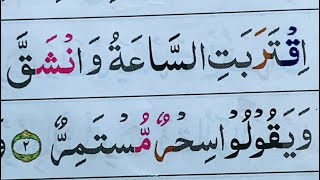 اِقْتَرَبَتِ السَّاعَةُ وَانْشَقَّ
وَيَقُوْلُوْا سِحْرٌ مُّسْتَمِرٌّ ۝٢